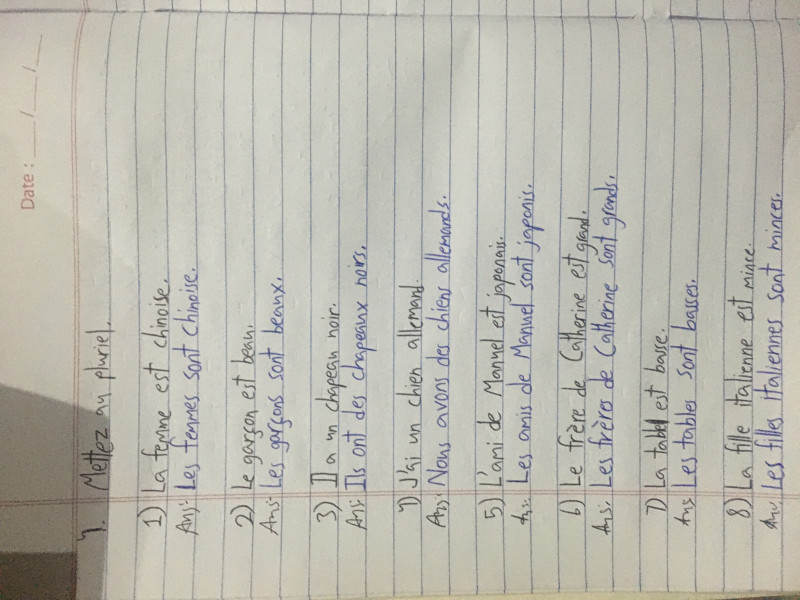 Date : __/__/__
4. Mettez au pluriel.
1) La femme est chinoise.
Ans: Les femmes sont chinoise.
2) Le garçon est beau.
Ans: Les garçons sont beaux.
3) Il a un chapeau noir.
Ans: Ils ont des chapeaux noirs.
4) J'ai un chien allemand.
Ans: Nous avons des chiens allemands.
5) L'ami de Manuel est japonais.
Ans: Les amis de Manuel sont japonis.
6) Le frère de Catherine est grand.
Ans: Les frères de Catherine sont grands.
7) La tabel est basse.
Ans: Les tables sont basses.
8) La fille italienne est mince.
Ans: Les filles italiennes sont minces.